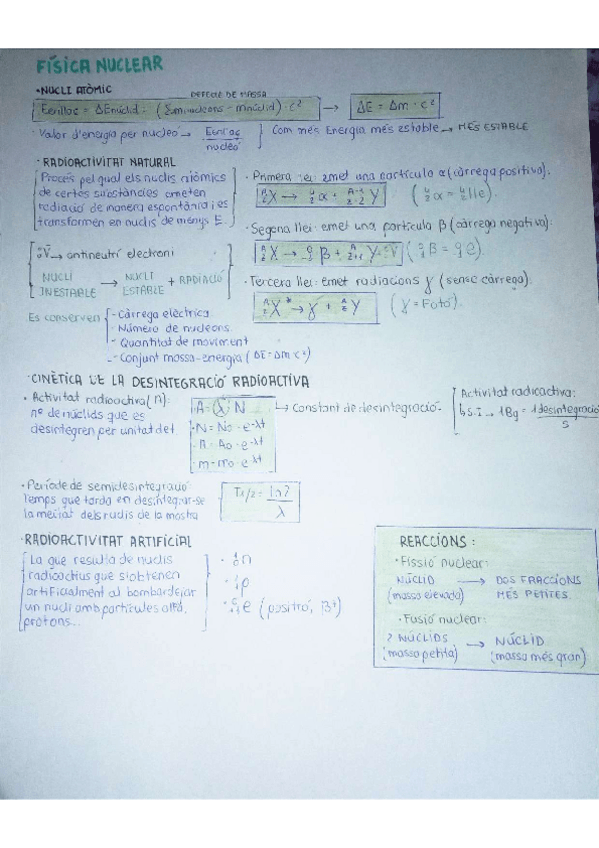 FÍSICA NUCLEAR
· NUCLI ATÒMIC
DEFECTE DE MASSA
Eenllaç = ΔEnúclid = (Σmnucleons - mnúclid) · c² → ΔE = Δm · c²
· Valor d'energia per nucleó → Eenllaç / nucleó } Com més Energia més estable → MÉS ESTABLE
· RADIOACTIVITAT NATURAL
Procés pel qual els nuclis atòmics
de certes substàncies emeten
radiació de manera espontània i es
transformen en nuclis de menys E.
· Primera llei: emet una partícula α (càrrega positiva).
ᴬ_Z X → ⁴₂α + ᴬ⁻⁴_Z₋₂ Y (⁴₂α = ⁴₂He).
· Segona llei: emet una partícula β (càrrega negativa):
ᴬ_Z X → ⁰₋₁β + ᴬ_Z₊₁ Y + ⁰₀ν̄ (⁰₋₁β = ⁰₋₁e).
⁰₀ν̄ → antineutrí electroni
NUCLI INESTABLE → NUCLI ESTABLE + RADIACIÓ
· Tercera llei: emet radiacions γ (sense càrrega).
ᴬ_Z X* → γ + ᴬ_Z Y (γ = Fotó).
Es conserven { - Càrrega elèctrica
· Número de nucleons.
- Quantitat de moviment
- Conjunt massa-energia (ΔE = Δm c²)
· CINÈTICA DE LA DESINTEGRACIÓ RADIOACTIVA
· Activitat radioactiva (A):
nº de núclids que es
desintegren per unitat de t.
A = λ N → Constant de desintegració.
· N = N₀ · e^-λt
· A = A₀ · e^-λt
· m = m₀ · e^-λt
Activitat radioactiva:
↳ S.I → 1Bq = 1 desintegració / s
· Període de semidesintegració
Temps que tarda en desintegrar-se
la meitat dels nuclis de la mostra
T1/2 = ln 2 / λ
· RADIOACTIVITAT ARTIFICIAL
La que resulta de nuclis
radioactius que s'obtenen
artificialment al bombardejar
un nucli amb partícules alfa,
protons...
· ¹₀n
· ¹₁p
· ⁰₁e (positró, β⁺)
REACCIONS:
· Fissió nuclear:
NÚCLID → DOS FRACCIONS
(massa elevada) MÉS PETITES.
· Fusió nuclear:
2 NÚCLIDS → NÚCLID
(massa petita) (massa més gran)